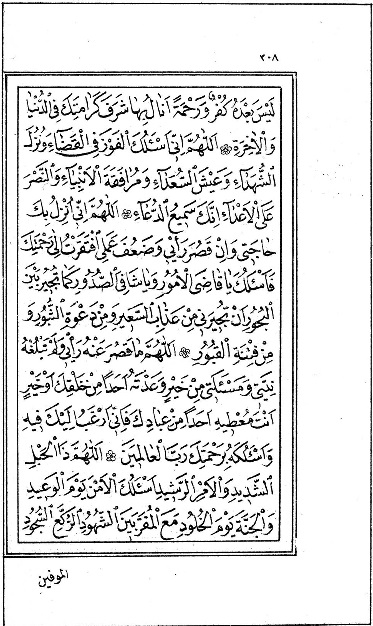 ٣٠٨
لَيْسَ بَعْدَهُ كُفْرٌ وَرَحْمَةً اَنَالُ بِهَا شَرَفَ كَرَامَتِكَ فِي الدُّنْيَا
وَالْاٰخِرَةِ ۞ اَللّٰهُمَّ اِنّٖى اَسْئَلُكَ الْفَوْزَ فِي الْقَضَاۤءِ وَنُزُلَ
الشُّهَدَاۤءِ وَعَيْشَ السُّعَدَاۤءِ وَمُرَافَقَةَ الْاَنْبِيَاۤءِ وَالنَّصْرَ
عَلَى الْاَعْدَاۤءِ اِنَّكَ سَمِيعُ الدُّعَاۤءِ ۞ اَللّٰهُمَّ اِنّٖى اُنْزِلُ بِكَ
حَاجَتِى وَاِنْ قَصُرَ رَأْيِى وَضَعُفَ عَمَلِى اِفْتَقَرْتُ اِلٰى رَحْمَتِكَ
فَاَسْئَلُكَ يَا قَاضِىَ الْاُمُورِ وَيَا شَافِىَ الصُّدُورِ كَمَا تُجِيرُ بَيْنَ
الْبُحُورِ اَنْ تُجِيرَنِى مِنْ عَذَابِ السَّعِيرِ وَمِنْ دَعْوَةِ الثُّبُورِ وَ
مِنْ فِتْنَةِ الْقُبُورِ ۞ اَللّٰهُمَّ مَا قَصُرَ عَنْهُ رَأْيِى وَلَمْ تَبْلُغْهُ
نِيَّتِى وَمَسْئَلَتِى مِنْ خَيْرٍ وَعَدْتَهُ اَحَدًا مِنْ خَلْقِكَ اَوْ خَيْرٍ
اَنْتَ مُعْطِيهِ اَحَدًا مِنْ عِبَادِكَ فَاِنِّى اَرْغَبُ اِلَيْكَ فِيهِ
وَاَسْئَلُكَهُ بِرَحْمَتِكَ رَبَّ الْعَالَمِينَ ۞ اَللّٰهُمَّ ذَا الْحَبْلِ
الشَّدِيدِ وَالْاَمْرِ الرَّشِيدِ اَسْئَلُكَ الْاَمْنَ يَوْمَ الْوَعِيدِ
وَالْجَنَّةَ يَوْمَ الْخُلُودِ مَعَ الْمُقَرَّبِينَ الشُّهُودِ الرُّكَّعِ السُّجُودِ
الموفين